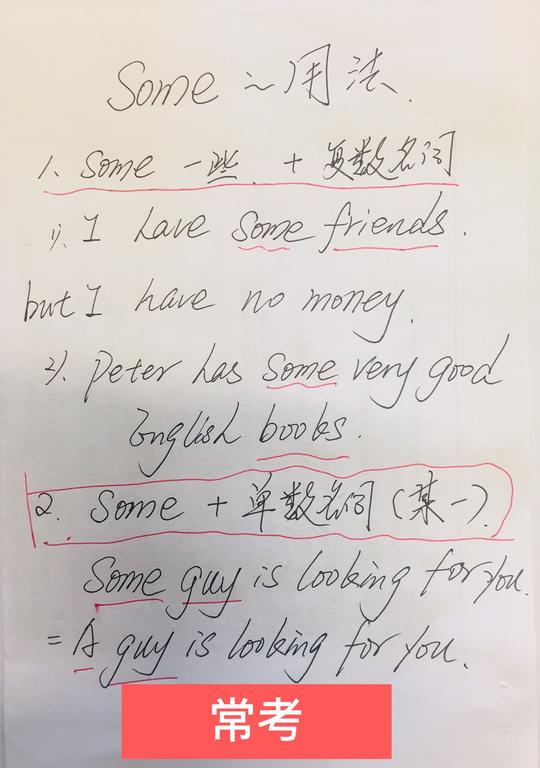 Some ~ 用法.
1. Some 一些. + 复数名词
1). I have some friends.
but I have no money.
2). Peter has some very good
English books.
2. Some + 单数名词 (某一).
Some guy is looking for you.
= A guy is looking for you.
常考